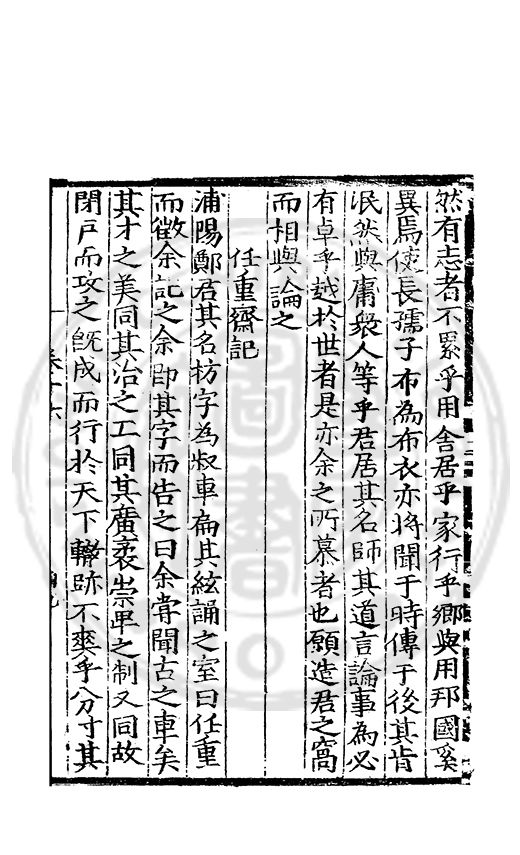 然有志者不累乎用舍居乎家行乎鄉與用邦國奚
異焉使長孺子布為布衣亦將聞于時傳于後其肯
泯然與庸衆人等乎君居其名師其道言論事為必
有卓乎越於世者是亦余之所慕者也願造君之窩
而相與論之
任重齋記
浦陽鄭君其名枋字為叔車扁其絃誦之室曰任重
而徵余記之余即其字而告之曰余甞聞古之車矣
其才之美同其治之工同其廣袤崇卑之制又同故
閉戶而攻之旣成而行於天下轍跡不爽乎八分寸其
卷十六